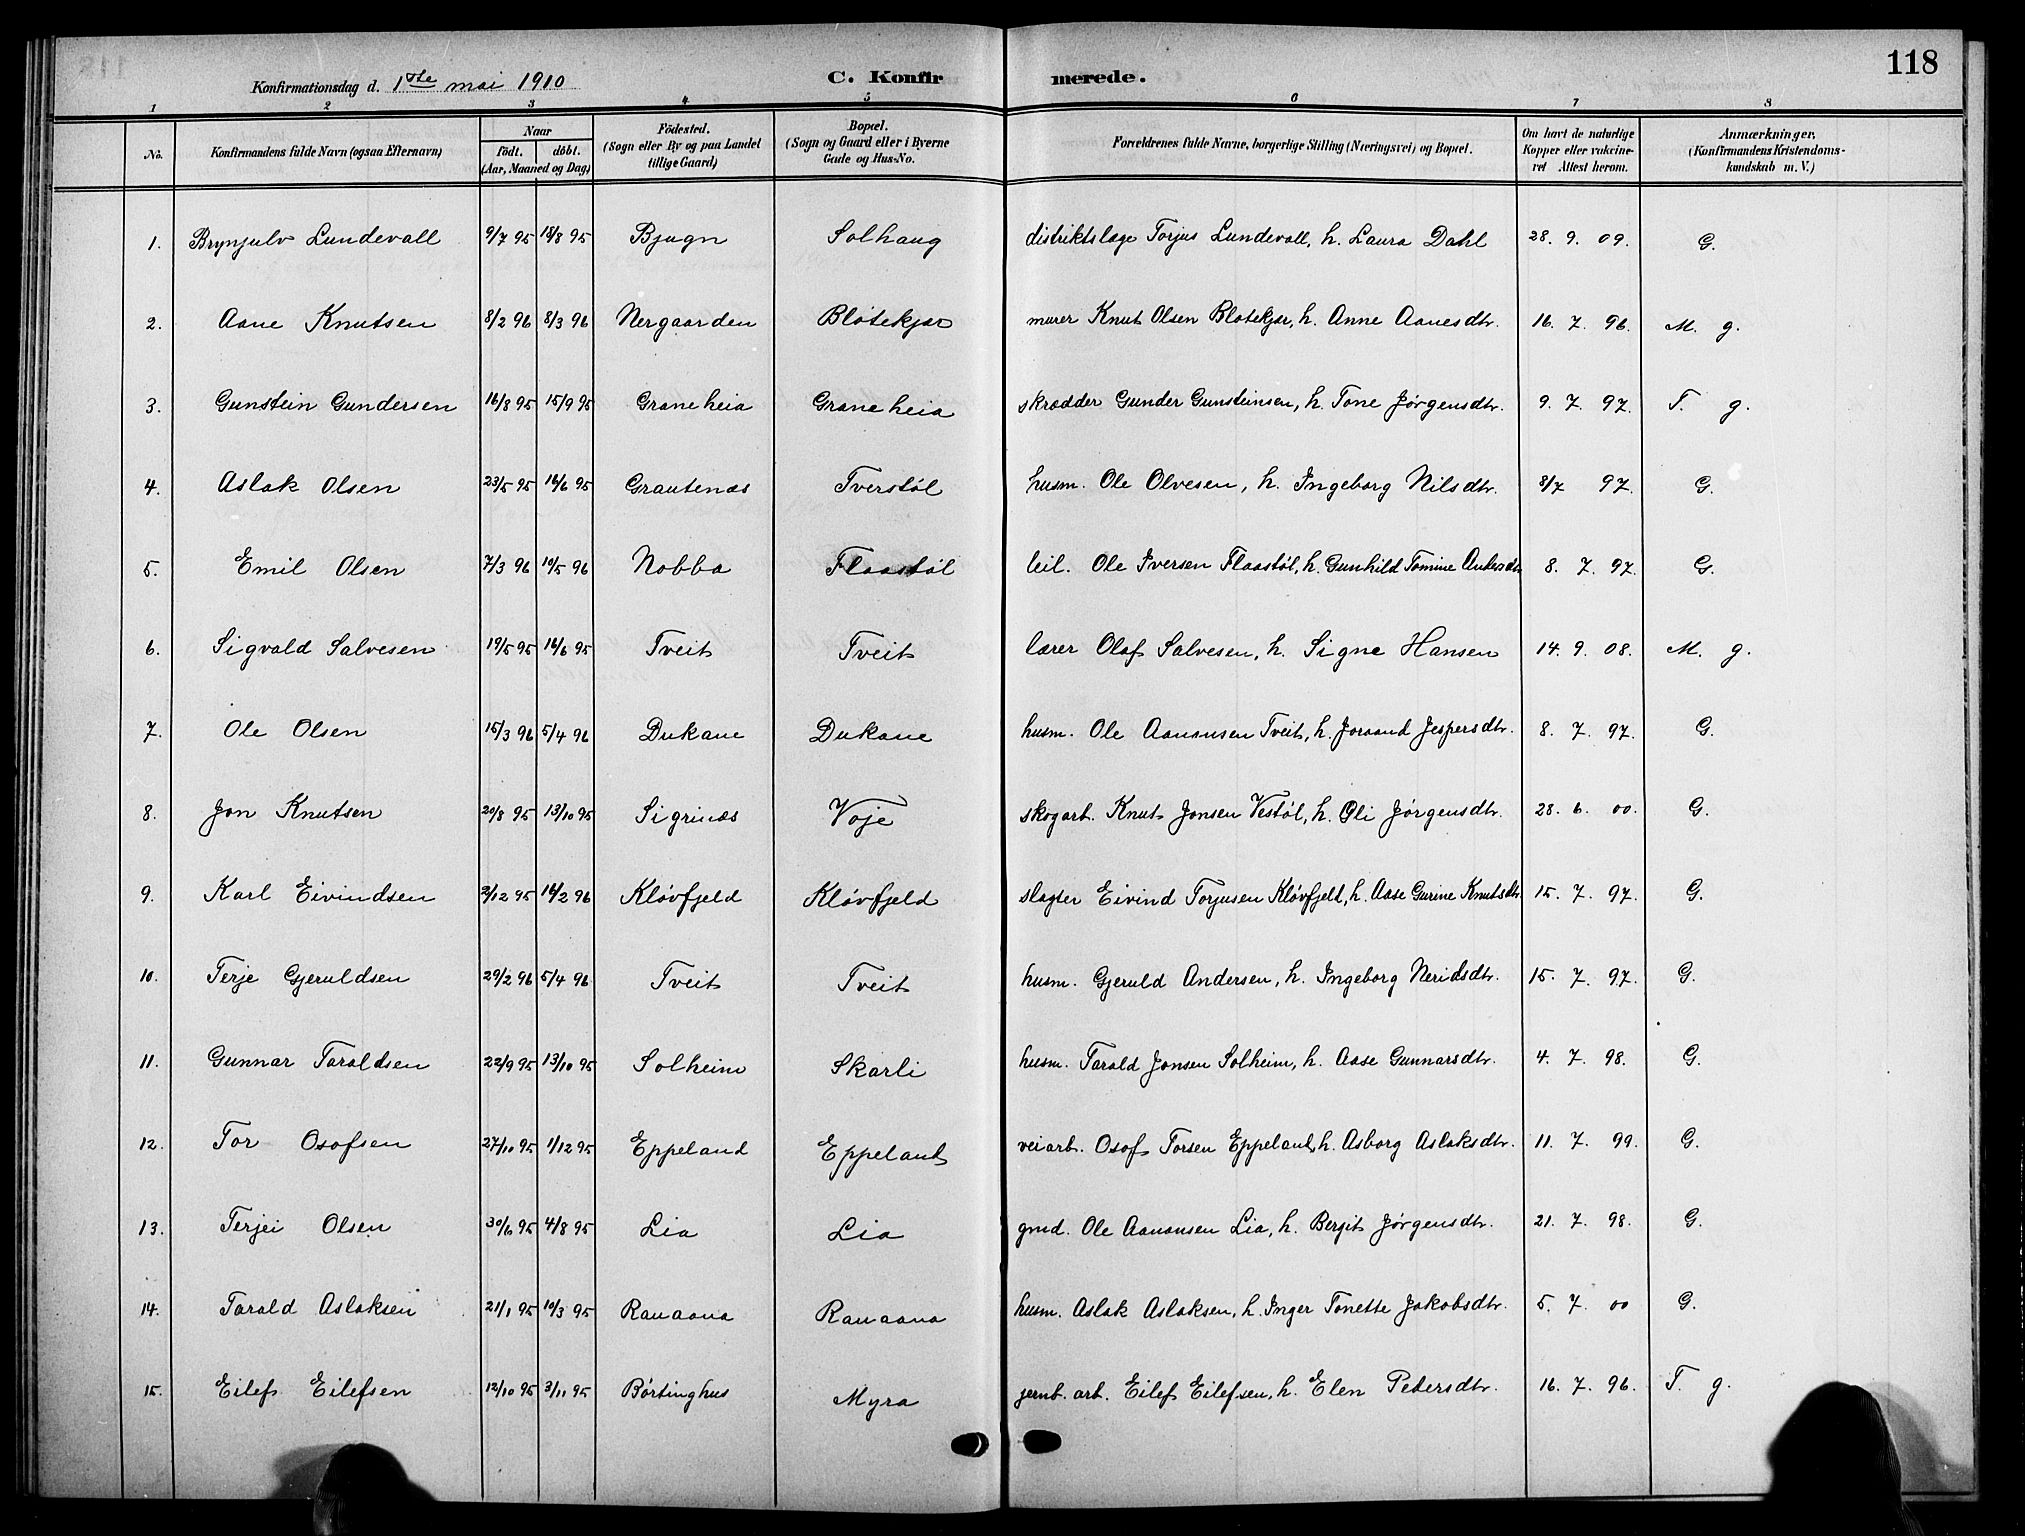 118
Konfirmationsdag d. 1ste mai 1910
C. Konfirmerede.
1 2 3 4 5 6 7 8
No. Konfirmandens fulde Navn (ogsaa Efternavn) Naar födt. döbt. (Aar, Maaned og Dag) Födested. (Sogn eller By og paa Landet tillige Gaard) Bopæl. (Sogn og Gaard eller i Byerne Gade og Hus-No. Forældrenes fulde Navne, borgerlige Stilling (Næringsvei) og Bopæl. Om havt de naturlige Kopper eller vakcineret Attest herom. Anmærkninger, (Konfirmandens Kristendomskundskab m. V.)
1. Brynjulv Lundevall 9/7 95 18/8 95 Bjugn Solhaug distriktslæge Torjus Lundevall, h. Laura Dahl 28. 9. 09. G.
2. Aane Knutsen 8/2 96 8/3 96 Nergaarden Bløtekjær murer Knut Olsen Bløtekjær, h. Anne Aanesdtr. 16. 7. 96. M. g.
3. Gunstein Gundersen 16/8 95 15/9 95 Graneheia Graneheia skrædder Gunder Gunsteinsen, h. Tone Jørgensdtr. 9. 7. 97. T. g.
4. Aslak Olsen 23/5 95 16/6 95 Grautenæs Tverstøl husm. Ole Olvesen, h. Ingeborg Nilsdtr. 8/7 97. G.
5. Emil Olsen 7/3 96 10/5 96 Nobba Flaastøl leil. Ole Iversen Flaastøl, h. Gunhild Tomine Andersdtr 8. 7. 97. G.
6. Sigvald Salvesen 19/5 95 16/6 95 Tveit Tveit lærer Olaf Salvesen, h. Signe Hansen 14. 9. 08. M. g.
7. Ole Olsen 15/3 96 5/4 96 Dukane Dukane husm. Ole Aanonsen Tveit, h. Joraand Jespersdtr. 8. 7. 97. G.
8. Jon Knutsen 20/8 95 13/10 95 Sigrinæs Voje skogarb. Knut Jonsen Vestøl, h. Oli Jørgensdtr. 28. 6. 00. G.
9. Karl Eivindsen 2/12 95 16/2 96 Kløvfjeld Kløvfjeld slagter Eivind Torjusen Kløvfjeld, h. Aase Gurine Knutsdtr. 15. 7. 97. G.
10. Terje Gjeruldsen 29/2 96 5/4 96 Tveit Tveit husm. Gjeruld Andersen, h. Ingeborg Neridsdtr. 15. 7. 97. G.
11. Gunnar Taraldsen 22/9 95 13/10 95 Solheim Skarli husm. Tarald Jonsen Solheim, h. Aase Gunnarsdtr. 4. 7. 98. G.
12. Tor Osofsen 27/10 95 1/12 95 Eppeland Eppeland veiarb. Osof Torsen Eppeland, h. Asborg Aslaksdtr. 11. 7. 99. G.
13. Terjei Olsen 30/6 95 4/8 95 Lia Lia gmd. Ole Aanonsen Lia, h. Bergit Jørgensdtr. 21. 7. 98. G.
14. Tarald Aslaksen 21/1 95 10/3 95 Ranaana Ranaana husm. Aslak Aslaksen, h. Inger Tonette Jakobsdtr. 5. 7. 00 G.
15. Eilef Eilefsen 12/10 95 3/11 95 Børtinghus Myra jernb. arb. Eilef Eilefsen, h. Elen Pedersdtr. 16. 7. 96. T. g.